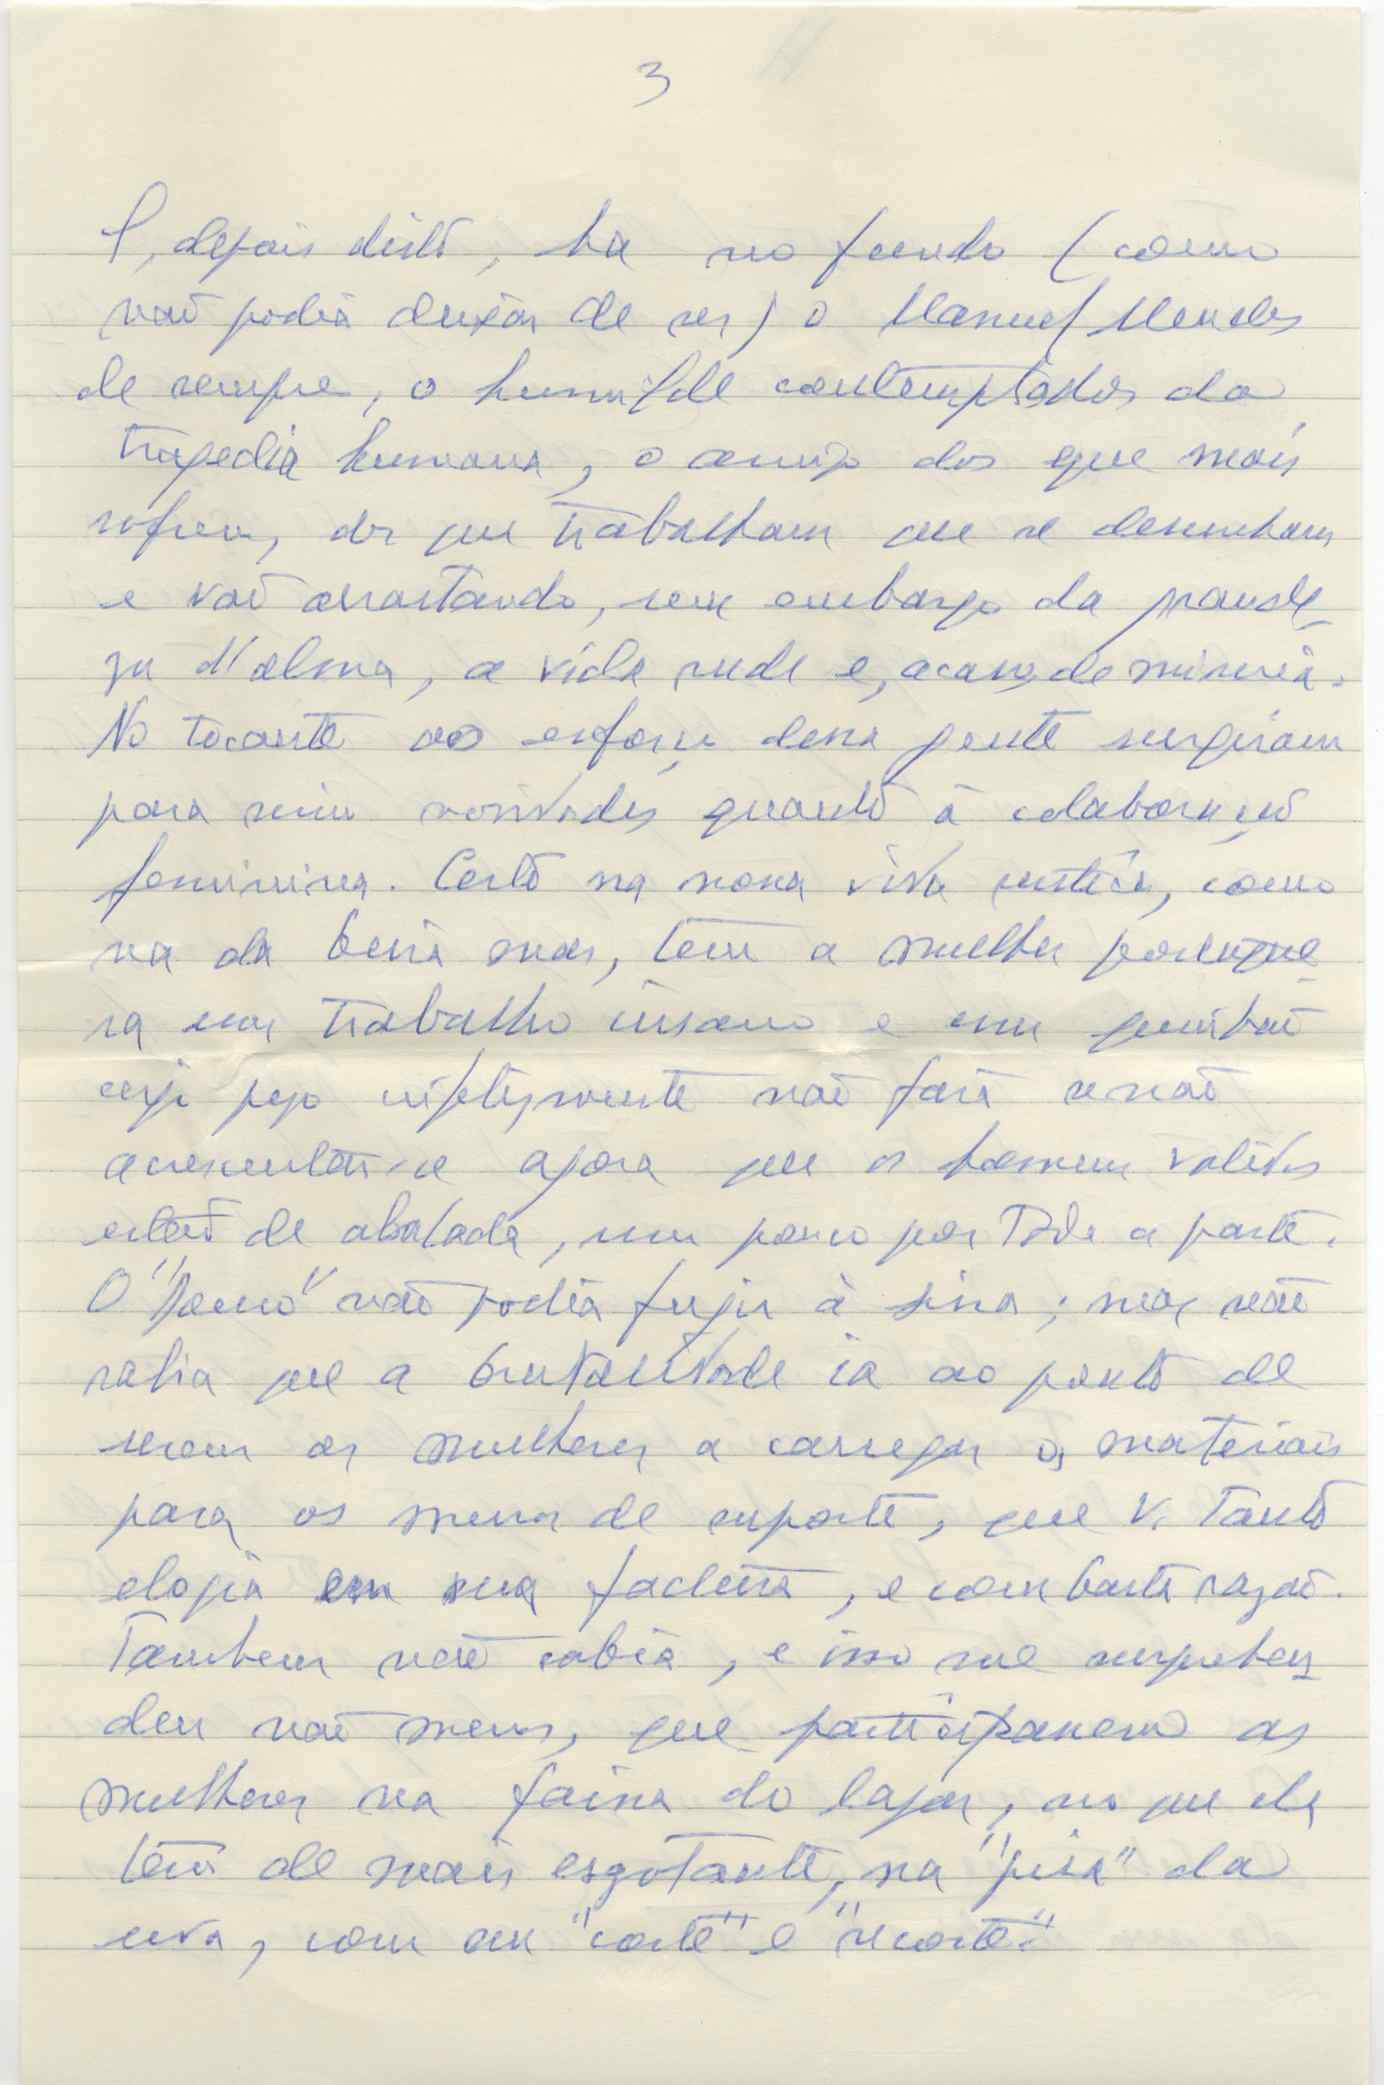 3
E, depois disto, ha no fundo (como
não podia deixar de ser) o Manuel Mendes
de sempre, o humilde contemplador da
tragedia humana, o amigo dos que mais
sofrem, dos que trabalham que se desunham
e vão arrastando, sem embargo da grande-
za d'alma, a vida rude e, acaso, de miseria.
No tocante ao esforço dessa gente surgiram
para mim novidades quanto à colaboração
feminina. Certo na nossa vida rustica, como
na da beira mar, tem a mulher portugue-
sa um trabalho insano e um quinhão
cujo peso infelizmente não fará senão
acrescentar-se agora que os homens validos
estão de abalada, um pouco por toda a parte.
O "Douro" não podia fugir à sina; mas não
sabia que a brutalidade ia ao ponto de
serem as mulheres a carregar os materiais
para os muros de suporte, que V. tanto
elogia em sua factura, e com basta razão.
Tambem não sabia, e isso me surpreen-
deu não menos, que participassem as
mulheres na faina do lagar, no que ela
tem de mais esgotante, na "pisa" da
uva, com ou "corte" e "recorte".